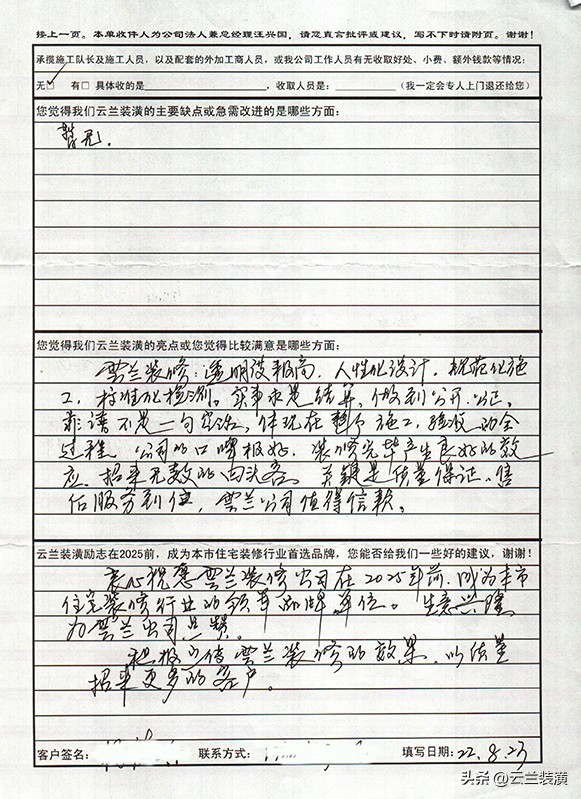 接上一页。本单收件人为公司法人兼总经理汪兴国，请您直言批评或建议，写不下时请附页。谢谢！
承揽施工队长及施工人员，以及配套的外加工商人员，或我公司工作人员有无收取好处、小费、额外钱款等情况：
无□ 有□ 具体收的是 ，收取人员是： （我一定会专人上门退还给您）
您觉得我们云兰装潢的主要缺点或急需改进的是哪些方面：
暂无.
您觉得我们云兰装潢的亮点或您觉得比较满意是哪些方面：
云兰装修：透明度极高，人性化设计，规范化施
工，标准化检测。实事求是结算，做到公开、公正。
靠谱不是一句空话，体现在整个施工、验收的全
过程，公司的口啤极好，装修完毕产生良好的效
应，招来无数的回头客，关键是质量保证，售
后服务到位，云兰公司值得信赖。
云兰装潢励志在2025前，成为本市住宅装修行业首选品牌，您能否给我们一些好的建议，谢谢！
衷心祝愿云兰装修公司在2025年前，成为本市
住宅装修行业的领军品牌单位。生意兴隆
为云兰公司点赞。
积极宣传云兰装修的效果，以质量
招来更多的客户。
客户签名： 联系方式： 填写日期：22.8.23
头条@云兰装潢